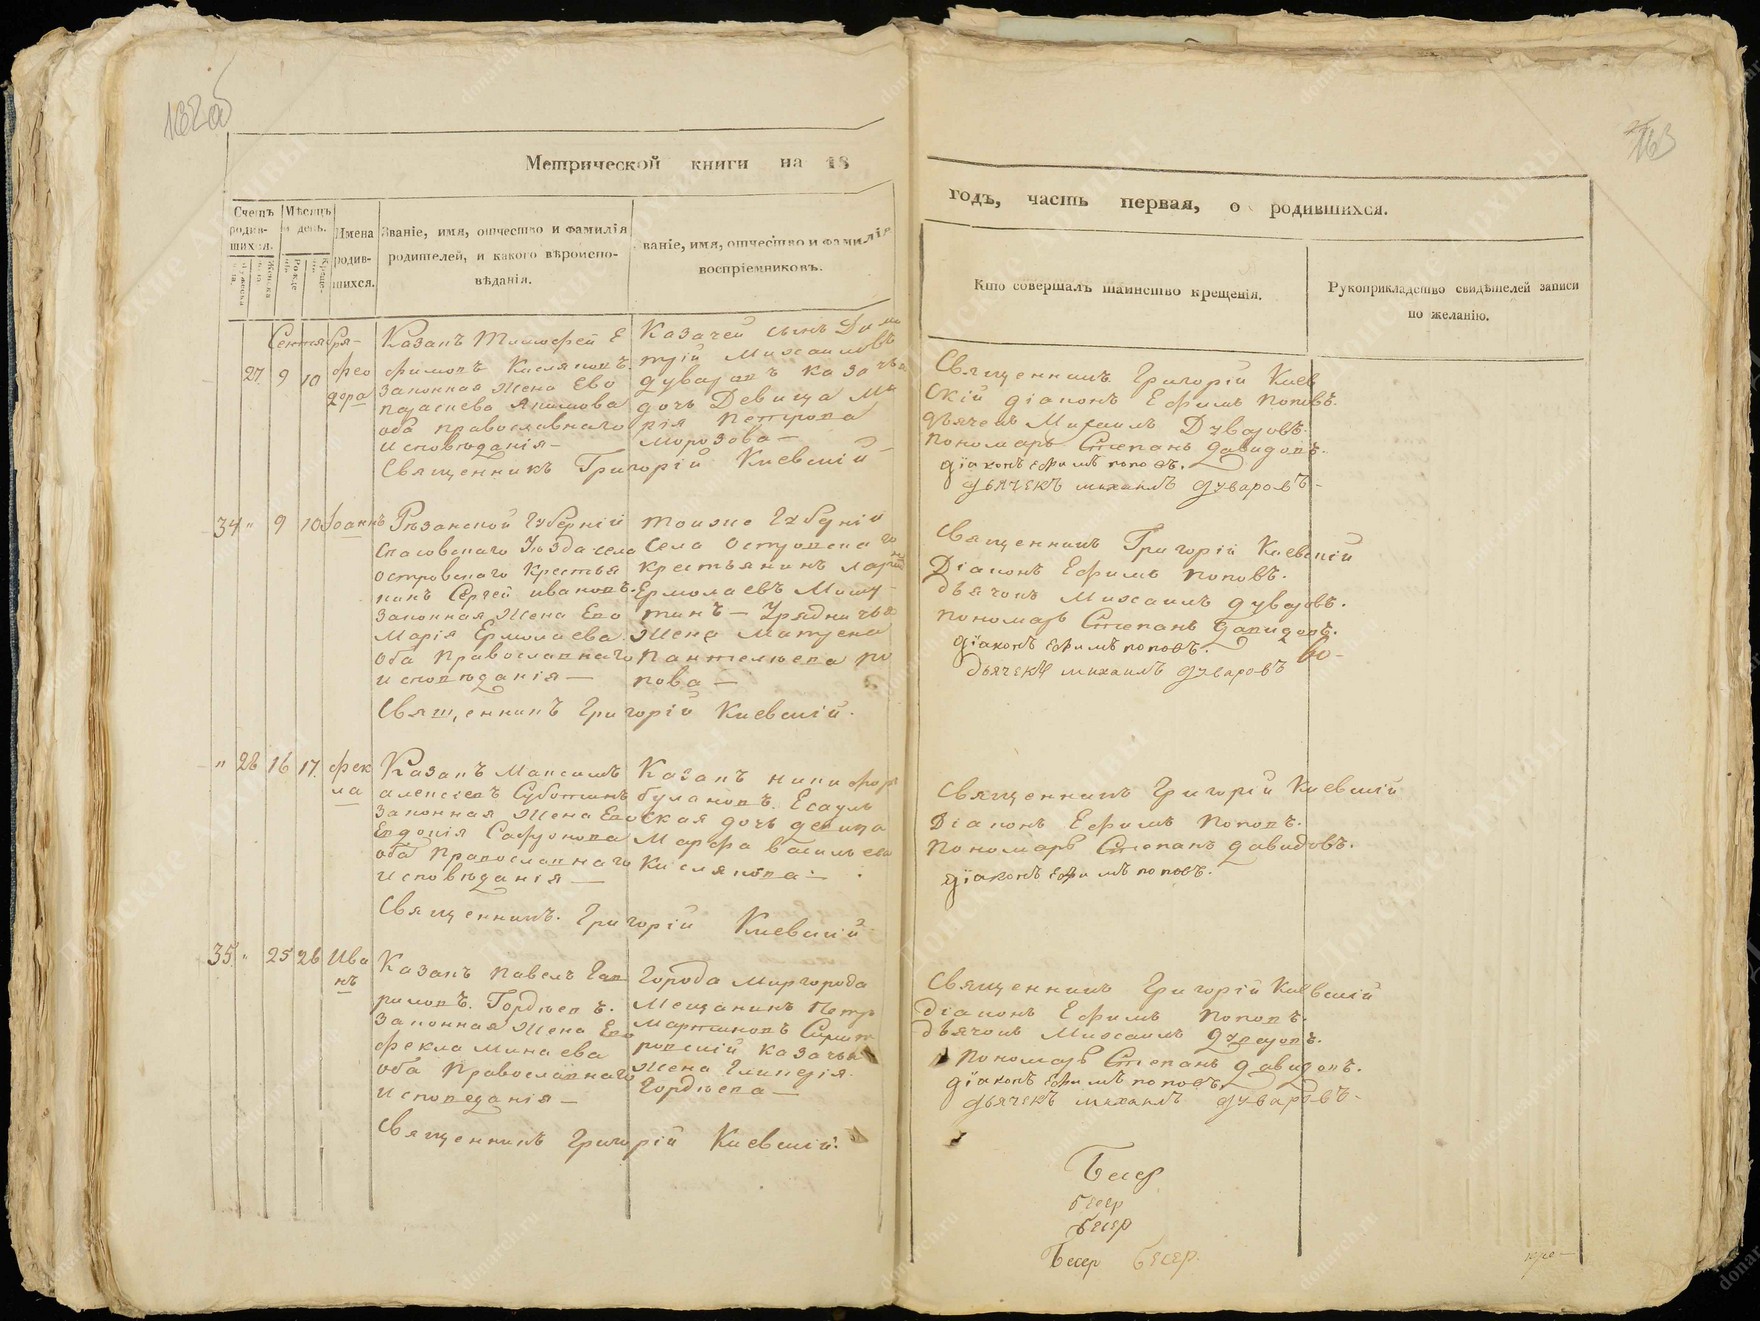 132об
163
Метрической книги на 18
годъ, часть первая, о родившихся.
Счетъ родив-шихся.
Мѣсяцъ и день.
Имена родив-шихся.
Званіе, имя, отчество и фамилія
родителей, и какого вѣроиспо-
вѣданія.
званіе, имя, отчество и фамилія
воспріемниковъ.
Кто совершалъ таинство крещенія.
Рукоприкладство свидѣтелей записи
по желанію.
Сентября
27 9 10 Фео
дора
Казакъ Тимофей Е
фимовъ Кисляковъ.
законная жена Ево
Акимова
оба православнаго
исповѣданія
Священникъ Григорій Киевскій
Казачей сынъ Дими
трій Михаиловъ
Дуваровъ казачья
дочь Девица Ма
рія Петрова
Морозова
Священникъ Григорій Киев
скій діаконъ Ефимъ Поповъ.
дьячекъ Михаилъ Дуваровъ.
пономарь Степанъ Давидовъ.
діаконъ Ефимъ поповъ.
дьячекъ михаилъ дуваровъ
34 " 9 10 Иоаннъ
Резанской Губерній
Спасовскаго Уѣзда села
островскаго Крестья
нинъ Сергей ивановъ.
законная жена Ево
Марія Ермолаева.
оба Православнаго
исповѣданія
Священникъ Григорій Киевскій.
тоиже Губерніи
Села Островскаго
крестьянинъ
Ермолаевъ
Урядничья
жена Матрена
Пантелѣева По
пова
Священникъ Григорій Киевскій
Діаконъ Ефимъ Поповъ.
дьячокъ Михаилъ дуваровъ.
пономарь Степанъ Давидовъ.
діаконъ Ефимъ поповъ.
дьячекъ михаилъ дуваровъ
" 28 16 17. Фек
ла
Казакъ Максимъ
алексіевъ Суботинъ
законная жена Ево
Евдокія Сафронова
оба Православнаго
исповѣданія
Священникъ. Григорій Киевскій
Казакъ никифоръ
булановъ. Есауль
ская дочь девица
Марфа васильева
Кислякова
Священникъ Григорій Киевскій
Діаконъ Ефимъ Поповъ.
пономарь Степанъ Давидовъ.
діаконъ Ефимъ поповъ.
35. " 25 26 Ива
нъ
Казакъ Павелъ Гав
риловъ. Гордѣевъ.
законная жена Ево
Фекла Минаева
оба Православнаго
исповеданія
Священникъ Григорій Киевскій.
Города Миргорода
Мещанинъ Петръ
Мартиновъ
казачья
жена Гликерія.
Гордѣева
Священникъ Григорій Киевскій
діаконъ Ефимъ Поповъ.
дьячокъ Михаилъ дуваровъ.
Пономарь Степанъ Давидовъ.
діаконъ Ефимъ поповъ.
дьячекъ михаилъ дуваровъ